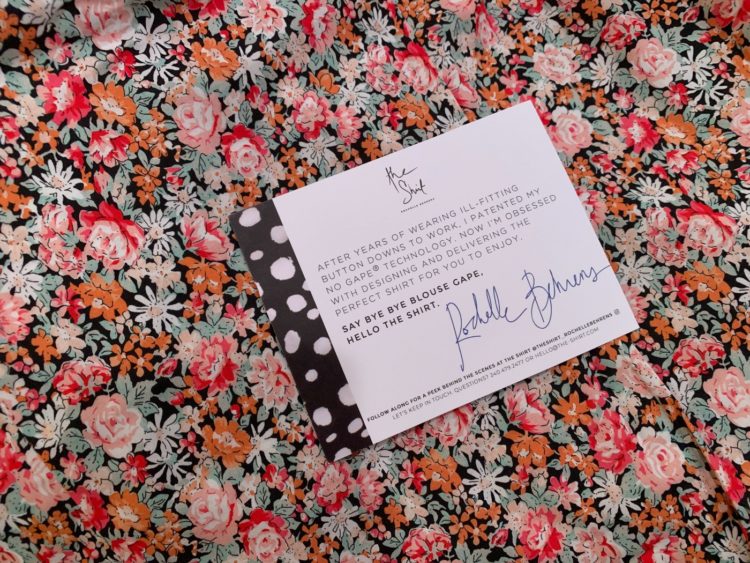 the
Shirt
ROCHELLE BEHRENS
AFTER YEARS OF WEARING ILL-FITTING
BUTTON DOWNS TO WORK, I PATENTED MY
NO GAPE® TECHNOLOGY. NOW I'M OBSESSED
WITH DESIGNING AND DELIVERING THE
PERFECT SHIRT FOR YOU TO ENJOY.
SAY BYE BYE BLOUSE GAPE,
HELLO THE SHIRT.
Rochelle Behrens
FOLLOW ALONG FOR A PEEK BEHIND THE SCENES AT THE SHIRT @THESHIRT_ROCHELLEBEHRENS
LET'S KEEP IN TOUCH. QUESTIONS? 240.479.2477 OR HELLO@THE-SHIRT.COM